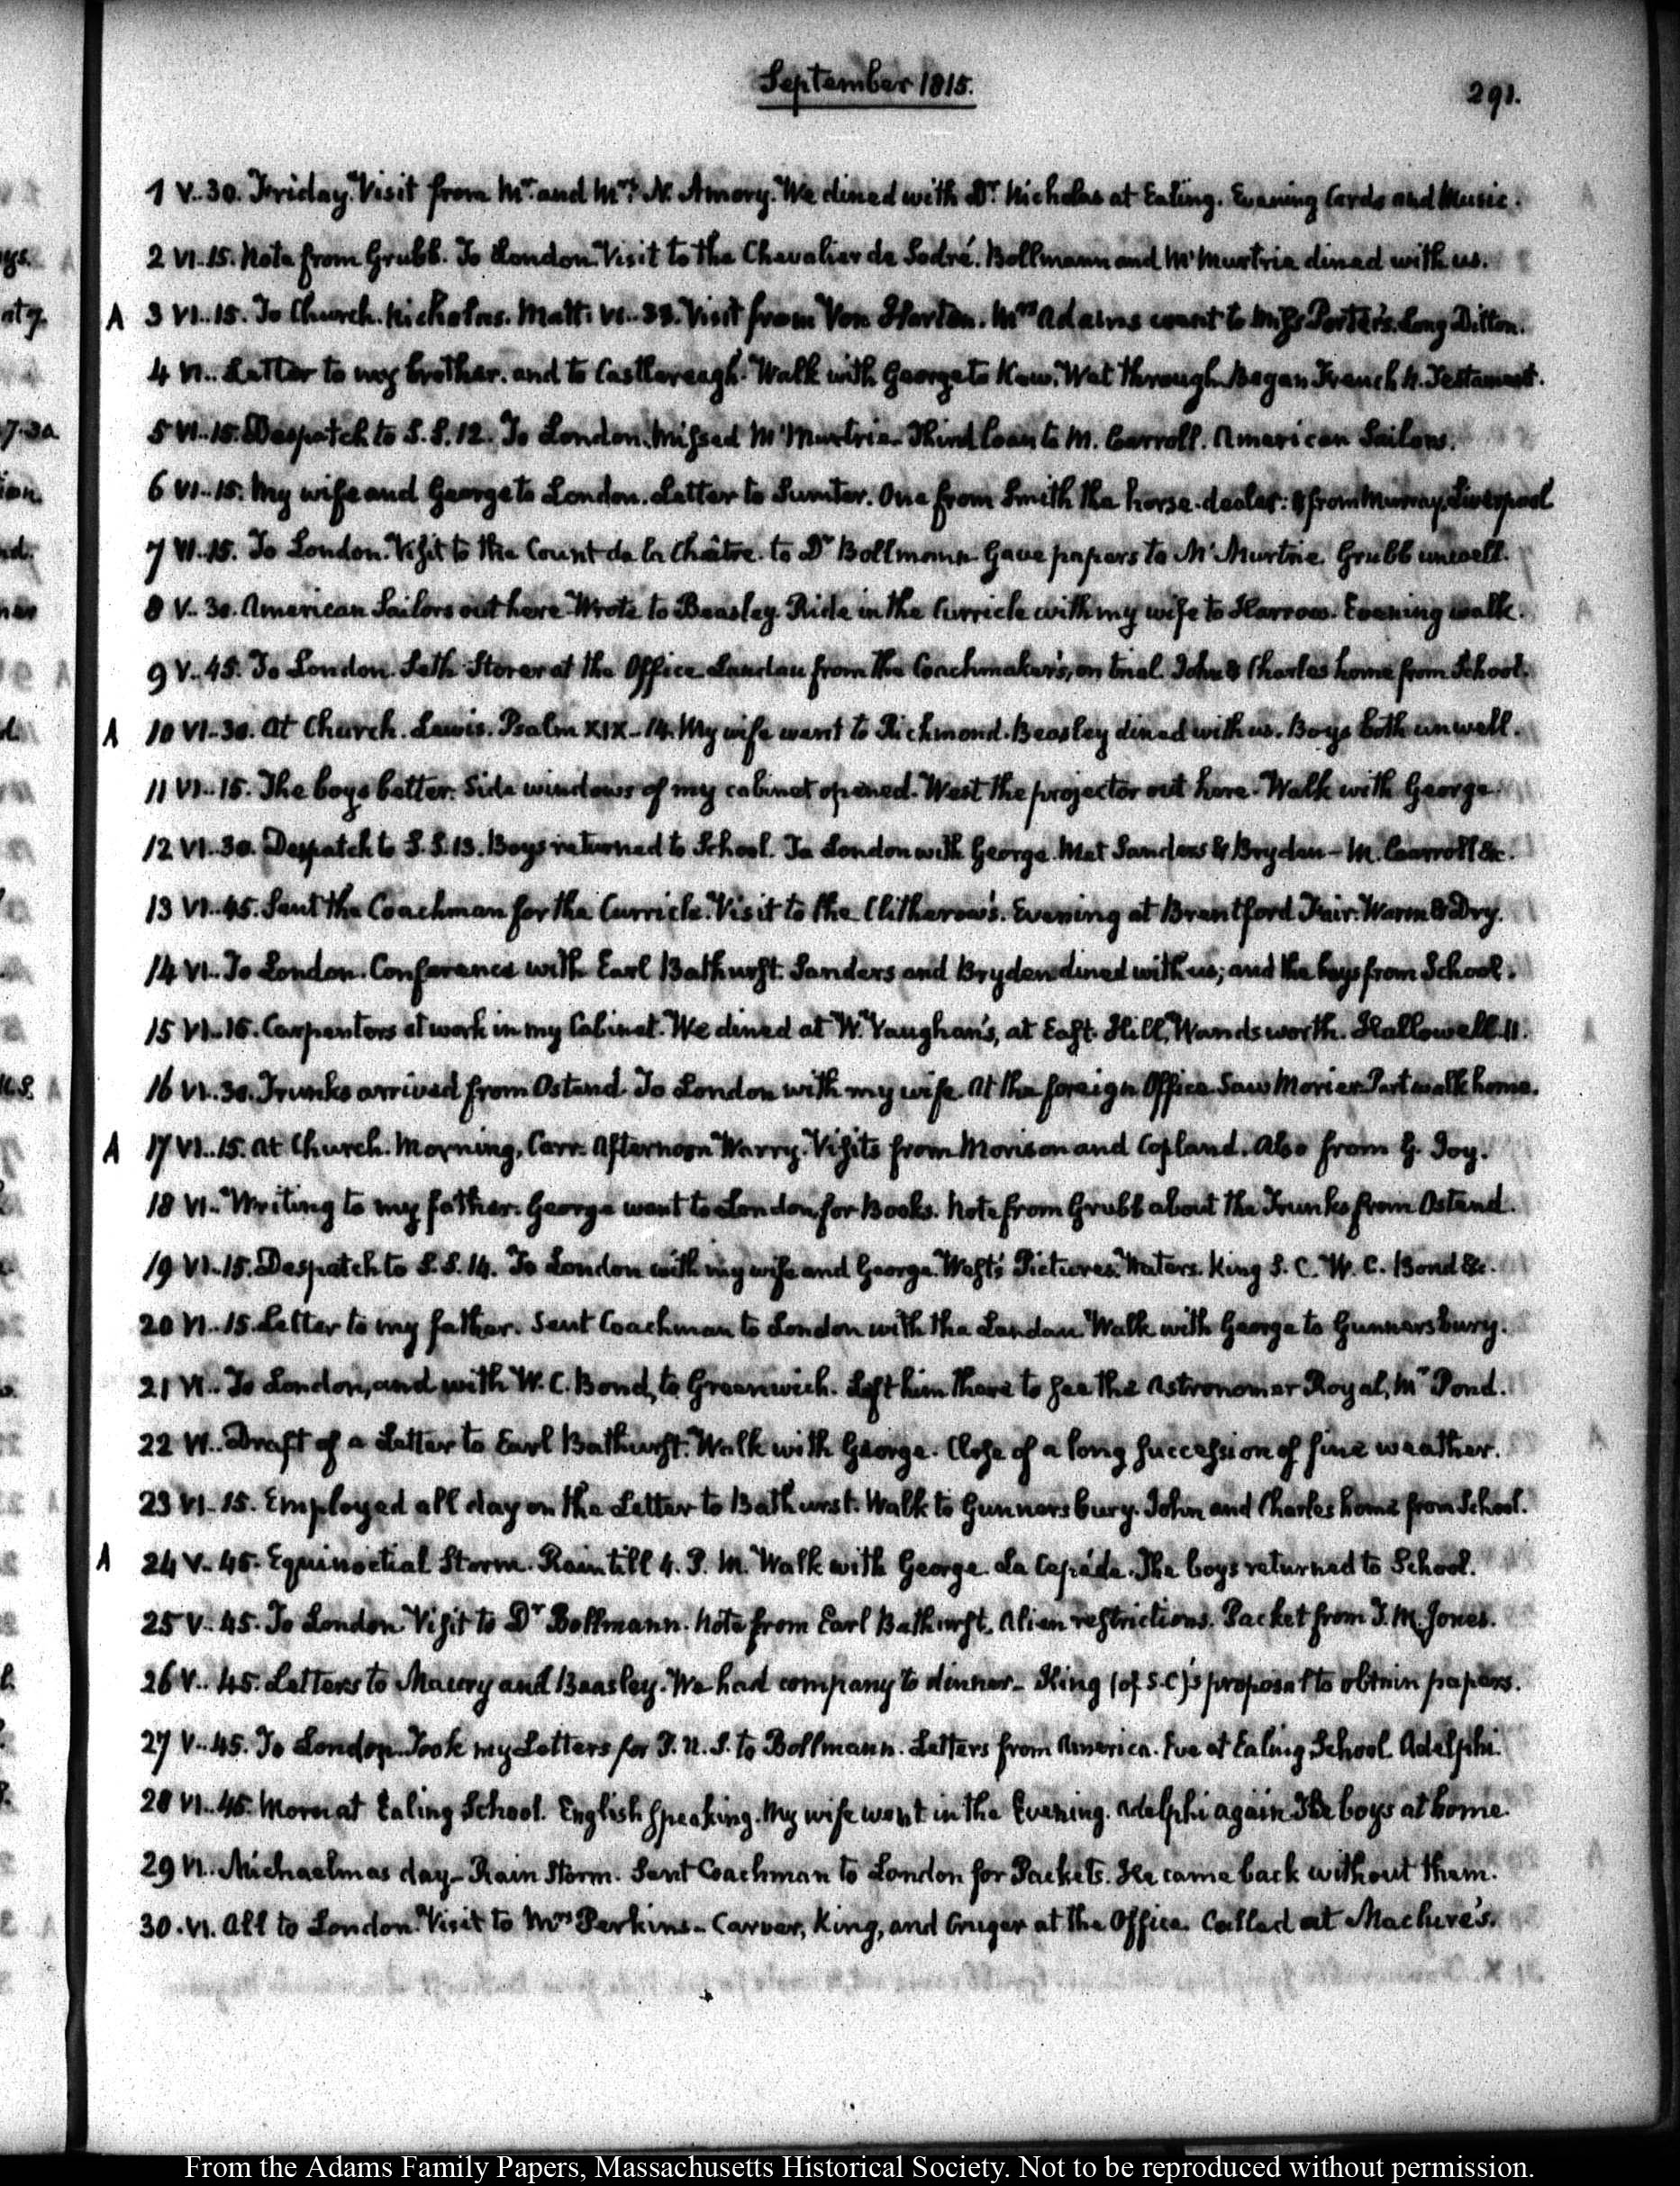 September 1815.
291.
1 V..30. Friday. Visit from Mr. and Mrs. N. Amory. We dined with Dr. Nicholas at Ealing. Evening Cards and Music.
2 VI..15. Note from Grubb. To London. Visit to the Chevalier de Sodré. Bollmann and McMurtrie dined with us.
A 3 VI..15. To Church. Nicholas. Matt. VI..33. Visit from Von Harten. Mrs Adams went to Miss Porter's. Long Ditton.
4 VI.. Letter to my brother. and to Castlereagh. Walk with George to Kew. Wet through. Began French N. Testament.
5 VI..15. Despatch to S.S. 12. To London. Missed McMurtrie. Third loan to M. Carroll. American Sailors.
6 VI..15. My wife and George to London. Letter to Sumter. One from Smith the horse-dealer: & from Murray, Liverpool
7 VI..15. To London. Visit to the Count de la Châtre. to Dr Bollmann. Gave papers to McMurtrie. Grubb unwell.
8 V..30. American Sailors out here. Wrote to Beasley. Ride in the Curricle with my wife to Harrow. Evening walk.
9 V..45. To London. Seth Storer at the Office. Landau from the Coachmaker's, on trial. John & Charles home from School.
A 10 VI..30. At Church. Lewis. Psalm XIX-14. My wife went to Richmond. Beasley dined with us. Boys both unwell.
11 VI..15. The boys better. Side windows of my cabinet opened. West the projector out here. Walk with George.
12 VI..30. Despatch to S.S. 13. Boys returned to School. To London with George. Met Sanders & Bryden – M. Carroll &c.
13 VI..45. Sent the Coachman for the Curricle. Visit to the Clitherow's. Evening at Brentford Fair. Warm & Dry.
14 VI.. To London. Conference with Earl Bathurst. Sanders and Bryden dined with us; and the boys from School.
15 VI..15. Carpenters at work in my Cabinet. We dined at W. Vaughan's, at East-Hill, Wandsworth. Hallowell. 11.
16 VI..30. Trunks arrived from Ostend. To London with my wife. At the foreign Office. Saw Morier. Part walk home.
A 17 VI..15. At Church. Morning, Carr. Afternoon Warry. Visits from Morison and Copland. Also from G. Joy.
18 VI.. Writing to my father. George went to London for Books. Note from Grubb about the Trunks from Ostend.
19 VI..15. Despatch to S.S. 14. To London with my wife and George. West's Pictures. Waters. King S.C. W.C. Bond &c.
20 VI..15. Letter to my father. Sent Coachman to London with the Landau. Walk with George to Gunnersbury.
21 VI.. To London, and with W.C. Bond, to Greenwich. Left him there to see the Astronomer Royal, Mr Pond.
22 VI.. Draft of a Letter to Earl Bathurst. Walk with George. Close of a long succession of fine weather.
23 VI..15. Employed all day on the Letter to Bathurst. Walk to Gunnersbury. John and Charles home from School.
A 24 V..45. Equinoctial Storm. Rain till 4. P.M. Walk with George. La Cepède. The boys returned to School.
25 V..45. To London. Visit to Dr Bollmann. Note from Earl Bathurst. Alien restrictions. Packet from T.M. Jones.
26 V..45. Letters to Maury and Beasley. We had company to dinner. King (of S.C)'s proposal to obtain papers.
27 V..45. To London. Took my Letters for T.U.S. to Bollmann. Letters from America. Eve at Ealing School. Adelphi.
28 VI..45. Morn at Ealing School. English Speaking. My wife went in the Evening. Adelphi again. The boys at home.
29 VI.. Michaelmas day – Rain Storm. Sent Coachman to London for Packets. He came back without them.
30. VI. All to London. Visit to Mrs Perkins – Carver, King, and Cruger at the Office. Called at Maclure's.
From the Adams Family Papers, Massachusetts Historical Society. Not to be reproduced without permission.